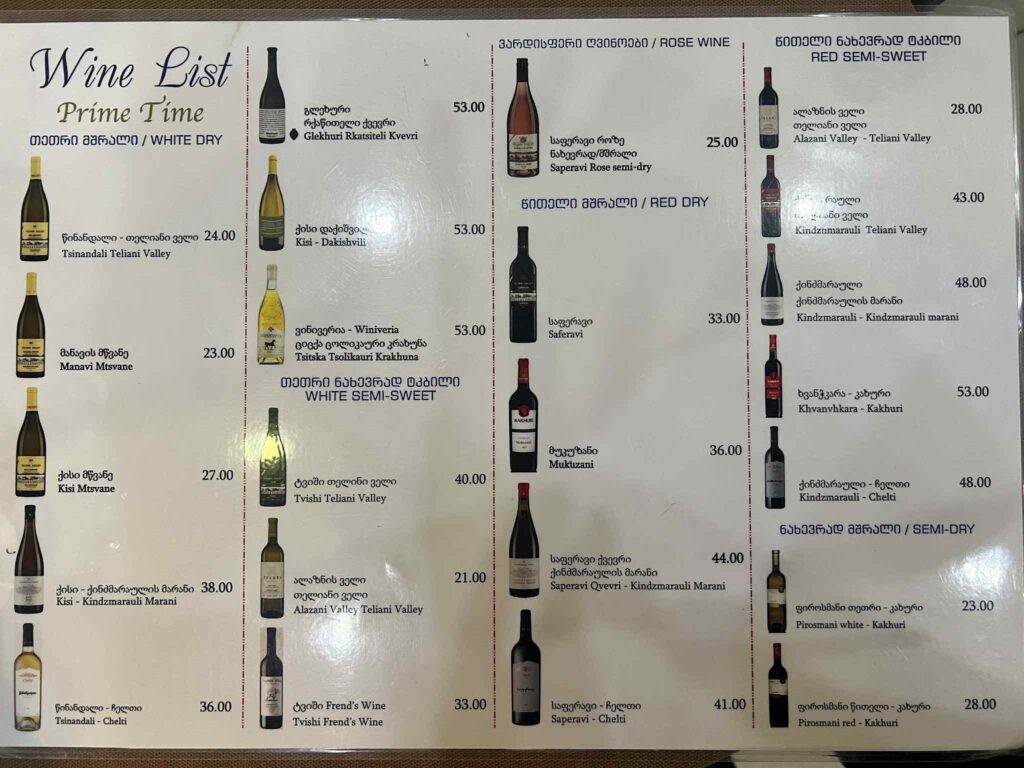 Wine List
Prime Time
თეთრი მშრალი / WHITE DRY
წინანდალი - თელიანი ველი 24.00
Tsinandali Teliani Valley
მანავის მწვანე 23.00
Manavi Mtsvane
ქისი მწვანე 27.00
Kisi Mtsvane
ქისი - ქინძმარაულის მარანი 38.00
Kisi - Kindzmarauli Marani
წინანდალი - ჩელთი 36.00
Tsinandali - Chelti
გლეხური 53.00
რქაწითელი ქვევრი
Glekhuri Rkatsiteli Kvevri
ქისი დაქიშვილი 53.00
Kisi - Dakishvili
ვინივერია - Winiveria 53.00
ციცქა ცოლიკაური კრახუნა
Tsitska Tsolikauri Krakhuna
თეთრი ნახევრად ტკბილი
WHITE SEMI-SWEET
ტვიში თელინი ველი 40.00
Tvishi Teliani Valley
ალაზნის ველი 21.00
თელიანი ველი
Alazani Valley Teliani Valley
ტვიში Frend's Wine 33.00
Tvishi Frend's Wine
ვარდისფერი ღვინოები / ROSE WINE
საფერავი როზე 25.00
ნახევრად/მშრალი
Saperavi Rose semi-dry
წითელი მშრალი / RED DRY
საფერავი 33.00
Saferavi
KAKHURI
მუკუზანი 36.00
Mukuzani
საფერავი ქვევრი 44.00
ქინძმარაულის მარანი
Saperavi Qvevri - Kindzmarauli Marani
საფერავი - ჩელთი 41.00
Saperavi - Chelti
წითელი ნახევრად ტკბილი
RED SEMI-SWEET
ალაზნის ველი 28.00
თელიანი ველი
Alazani Valley - Teliani Valley
43.00
ველი
Kindzmarauli Teliani Valley
ქინძმარაული 48.00
ქინძმარაულის მარანი
Kindzmarauli - Kindzmarauli marani
ხვანჭკარა - კახური 53.00
Khvanvhkara - Kakhuri
ქინძმარაული - ჩელთი 48.00
Kindzmarauli - Chelti
ნახევრად მშრალი / SEMI-DRY
ფიროსმანი თეთრი - კახური 23.00
Pirosmani white - Kakhuri
ფიროსმანი წითელი - კახური 28.00
Pirosmani red - Kakhuri